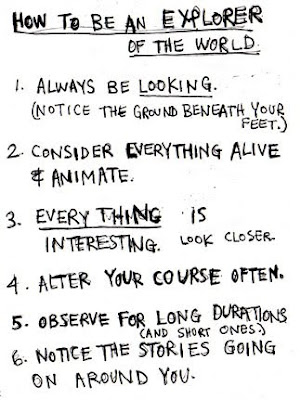 HOW TO BE AN EXPLORER
OF THE WORLD
1. ALWAYS BE LOOKING.
(NOTICE THE GROUND BENEATH YOUR
FEET.)
2. CONSIDER EVERYTHING ALIVE
& ANIMATE.
3. EVERY THING IS
INTERESTING. LOOK CLOSER.
4. ALTER YOUR COURSE OFTEN.
5. OBSERVE FOR LONG DURATIONS
(AND SHORT ONES.)
6. NOTICE THE STORIES GOING
ON AROUND YOU.